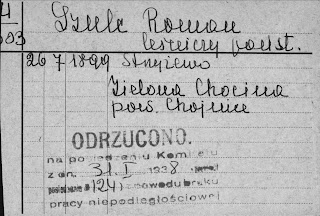 Szulc Roman
leśniczy państ.
26 7 1899 Stryjewo
Zielona Chocina
pow. Chojnice
ODRZUCONO.
na posiedzeniu Komitetu
z dn. 31. I 1938
124
pracy niepodległościowej